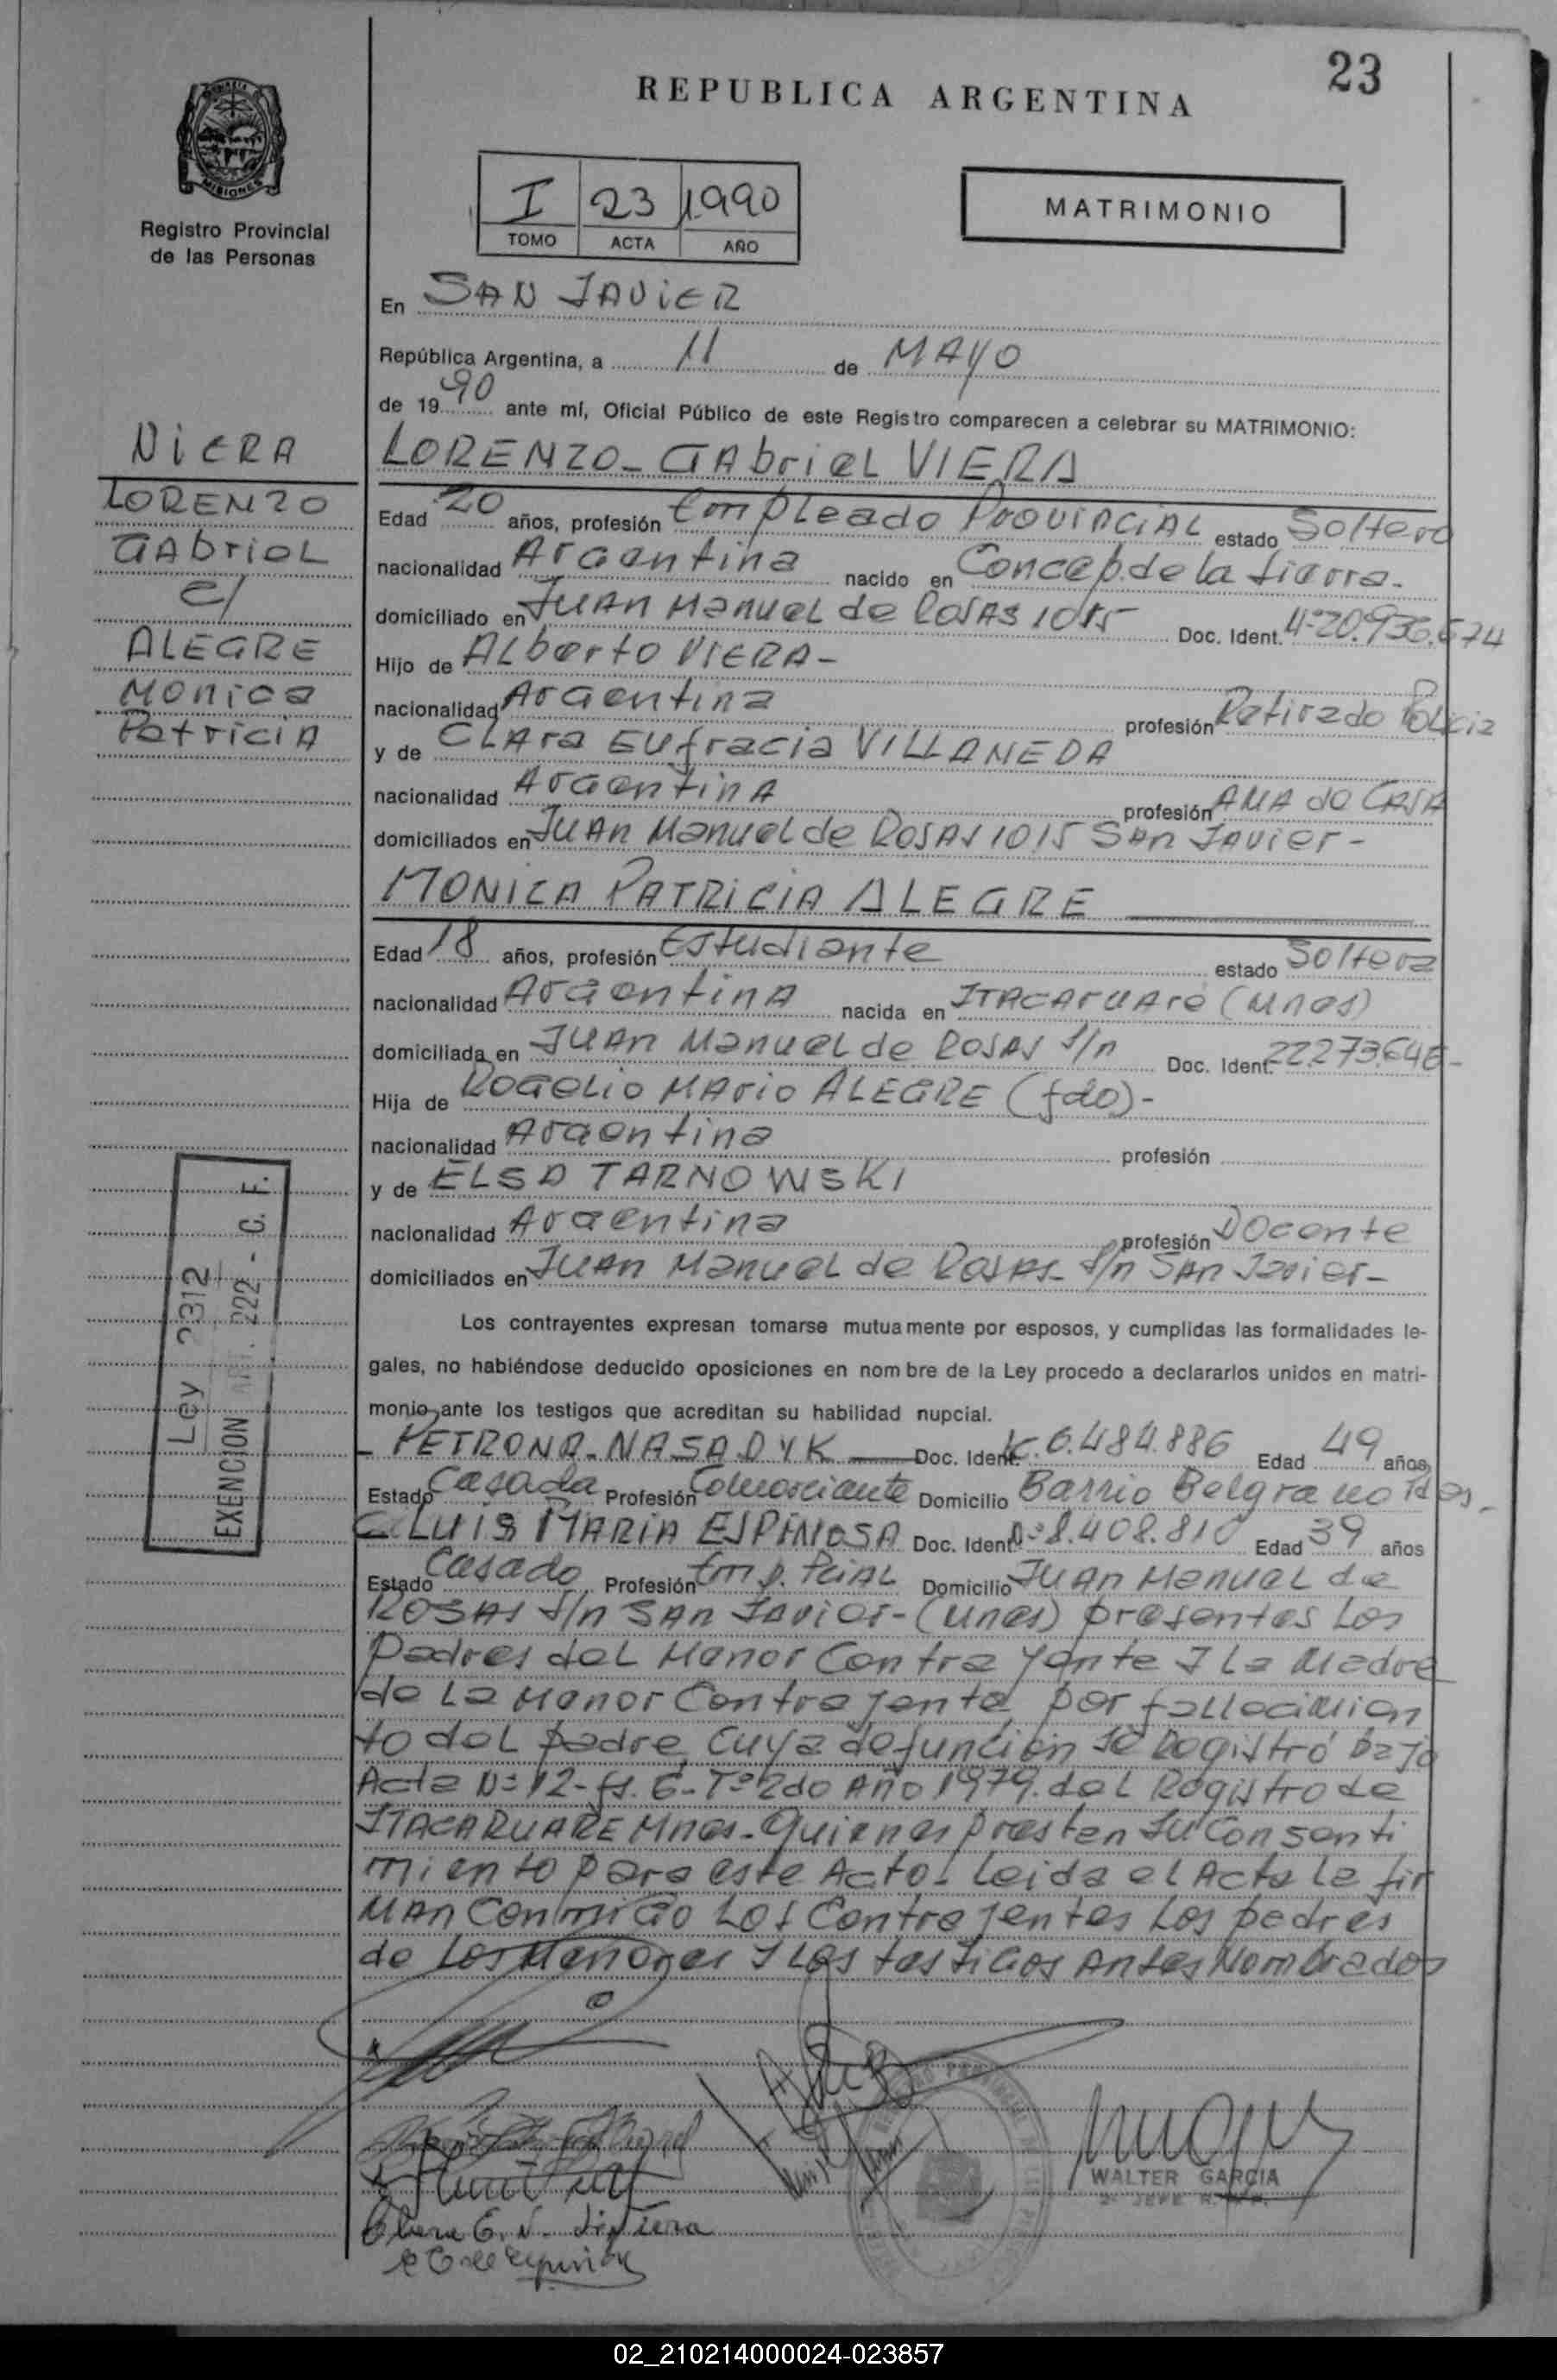 23
REPUBLICA ARGENTINA
MISIONES
Registro Provincial
de las Personas
I 23 1990
TOMO ACTA AÑO
MATRIMONIO
En SAN JAVIER
República Argentina, a 11 de MAYO
de 1990 ante mí, Oficial Público de este Registro comparecen a celebrar su MATRIMONIO:
VIERA
LORENZO
GAbrieL
c/
ALEGRE
MONica
PatriciA
LORENZO- GAbrieL VIERA
Edad 20 años, profesión EmpLeado ProvinciAL estado Soltero
nacionalidad Argentina nacido en Concep. de La Sierra-
domiciliado en JUAN ManueL de ROSAS 1015 Doc. Ident. Nº 20.936.674
Hijo de ALberto VIERA-
nacionalidad Argentina profesión Retirado PoLicia
y de CLAra Eufracia VILLANEDA
nacionalidad ArgentinA profesión AMA de CASA
domiciliados en JUAN ManueL de ROSAS 1015 SAn JAvier-
MONICA PATRICIA ALEGRE
Edad 18 años, profesión Estudiante estado Soltera
nacionalidad ArgentinA nacida en ITACAruAre (Mnes)
domiciliada en JUAN ManueL de ROSAS S/n Doc. Ident. 22.273.646-
Hija de ROGeLio MArio ALEGRE (fdo)-
nacionalidad Argentina profesión
y de ELSA TARNOWSKI
nacionalidad Argentina profesión Docente
domiciliados en JUAN ManueL de ROSAS- S/n SAn Javier-
Los contrayentes expresan tomarse mutuamente por esposos, y cumplidas las formalidades le-
gales, no habiéndose deducido oposiciones en nombre de la Ley procedo a declararlos unidos en matri-
monio ante los testigos que acreditan su habilidad nupcial.
- PETRONA- NASADYK Doc. Ident. 6.484.886 Edad 49 años
Estado Casada Profesión Comerciante Domicilio Barrio Belgrano Pdas-
LUIS MARIA ESPINOSA Doc. Ident. Nº 8.408.810 Edad 39 años
Estado Casado Profesión Emp. PciAL Domicilio JUAN ManueL de
ROSAS S/n SAn Javier- (Mnes) presentes Los
Padres deL Menor Contrayente y La Madre
de La Menor Contrayente, por falLecimien
to deL padre, Cuya defunción se Registró bajo
Acta Nº 12- fs. 6- Tº 2do Año 1979. deL Registro de
ITACARUARE Mnes- Quienes presten su Consenti
miento para este Acto- Leida el Acta La fir
MAn ConmiGo Los Contrayentes Los padres
de Los Menores y Los testiGos Antes Nombrados
Ley 2312
EXENCION ART. 222 - C. F.
WALTER GARCIA
02_210214000024-023857